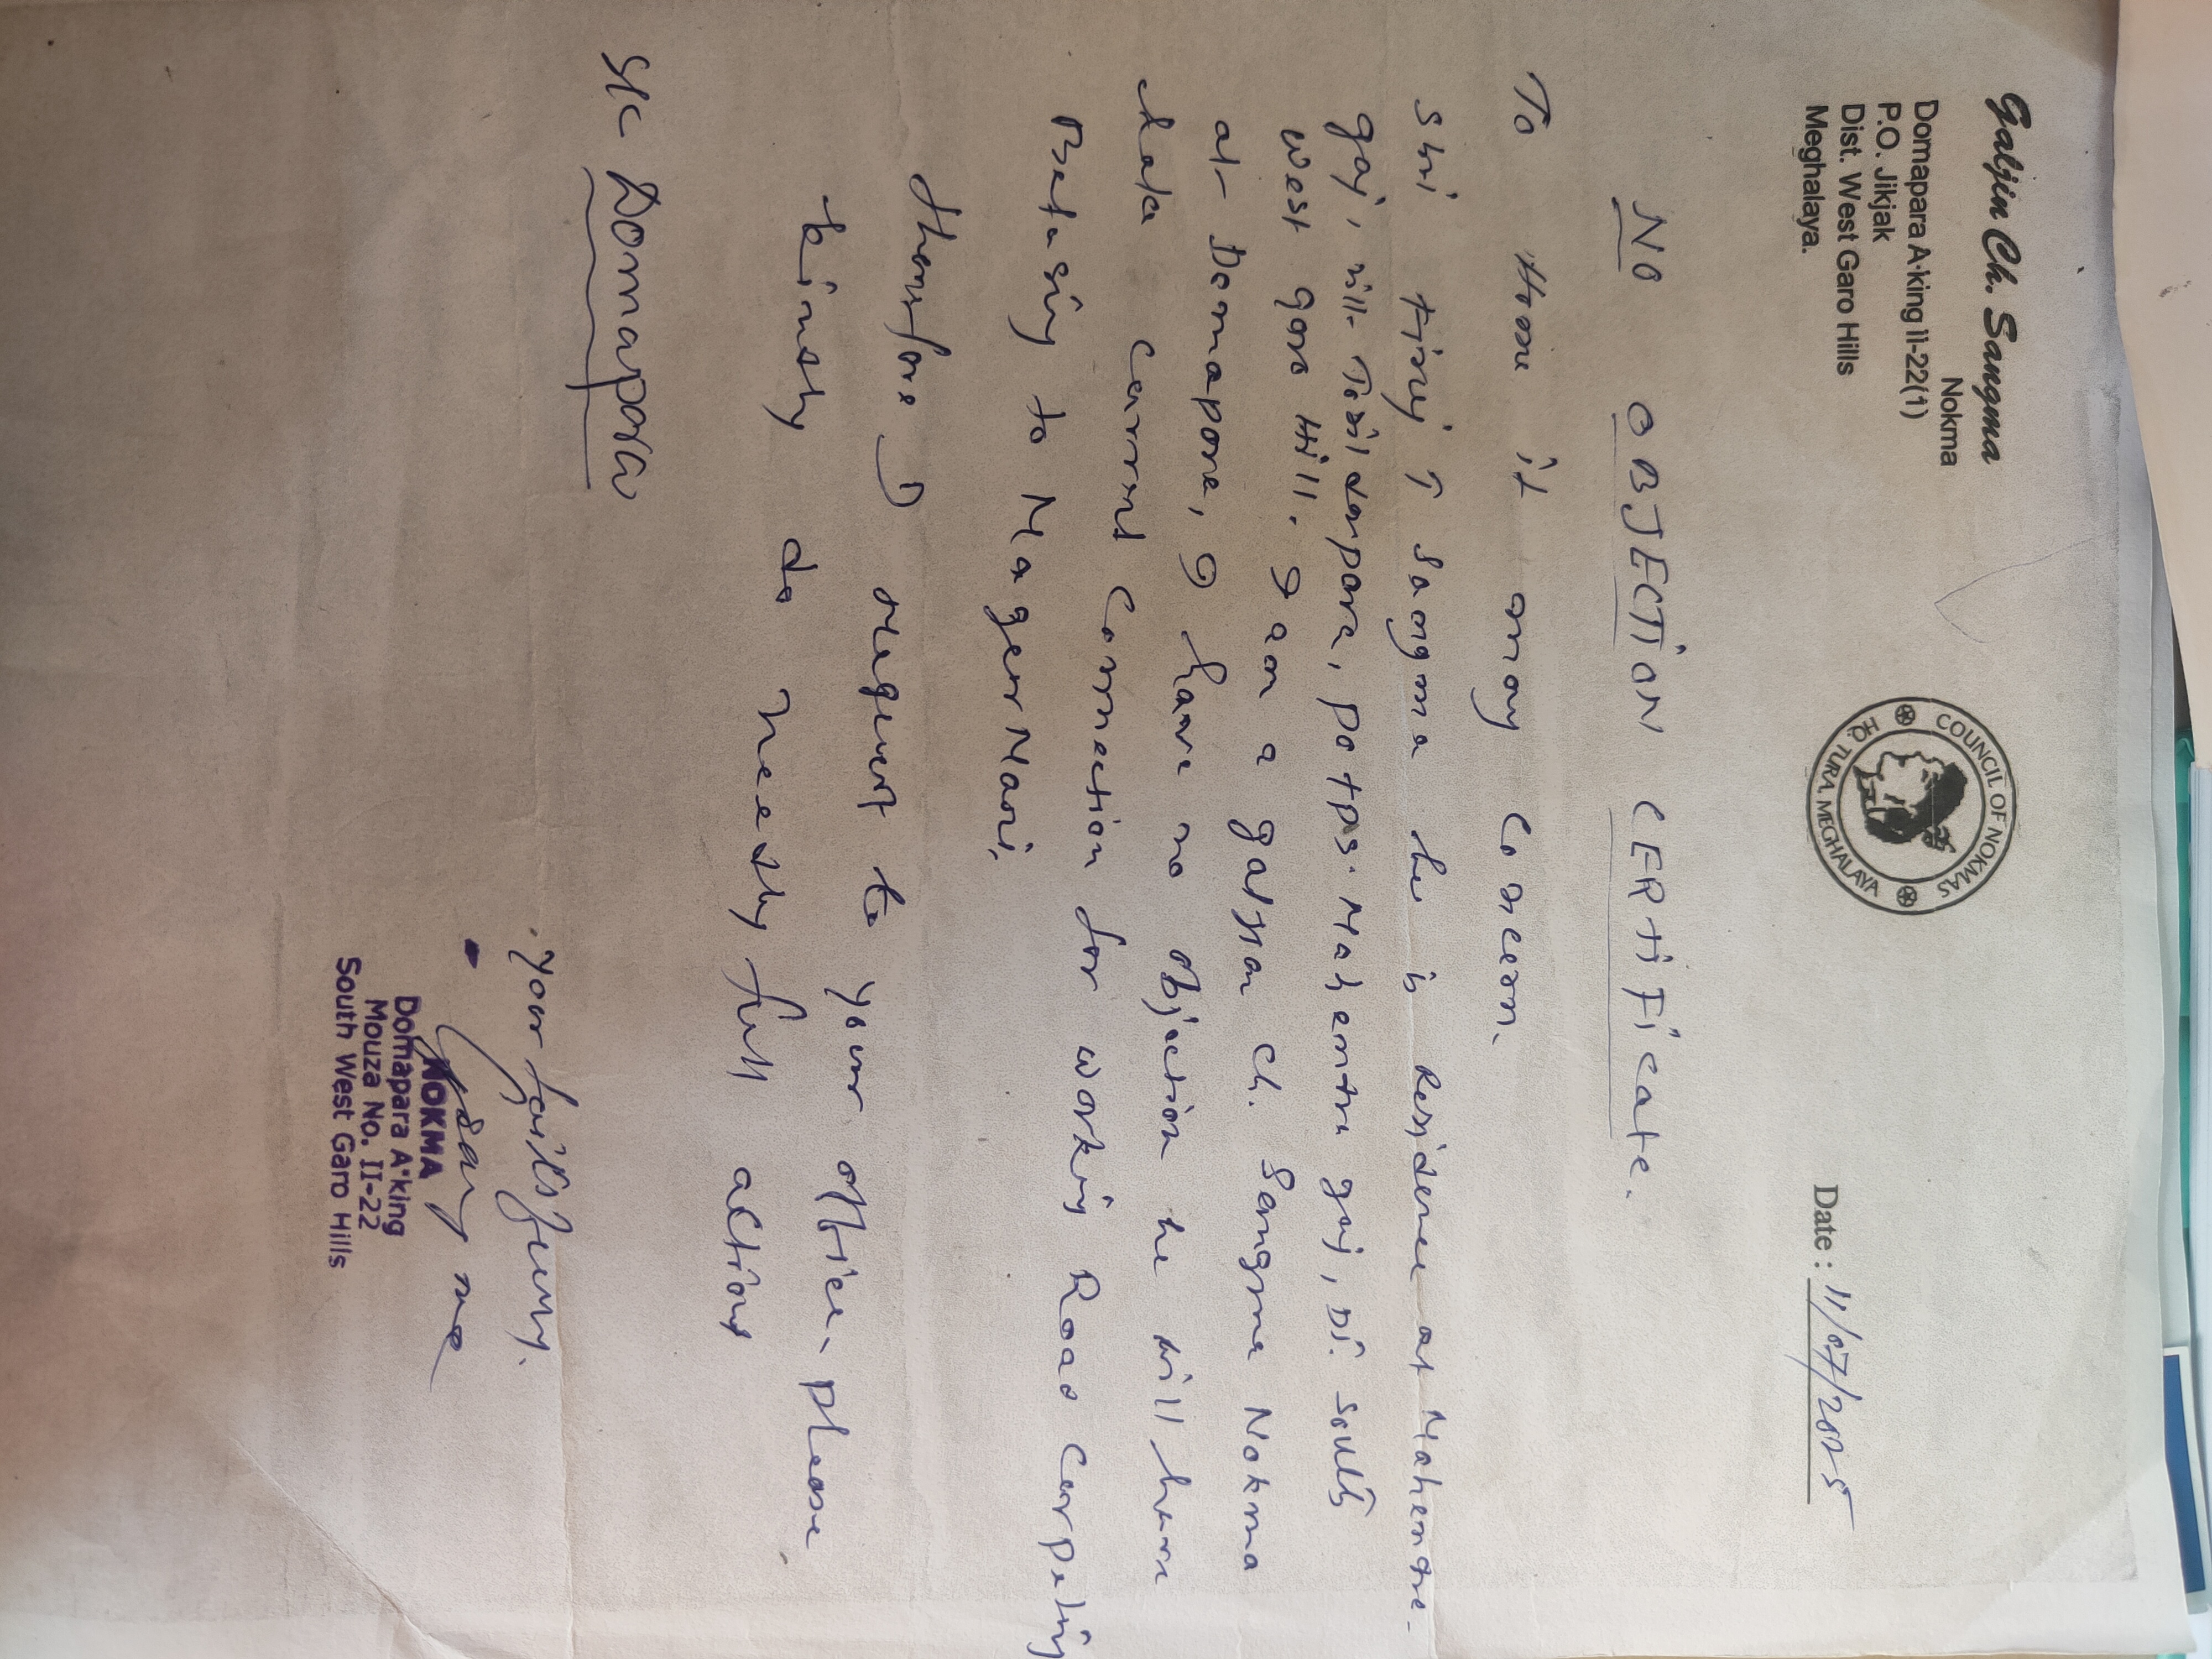 Galjin Ch. Sangma
Nokma
Domapara A·king II-22(1)
P.O. Jikjak
Dist. West Garo Hills
Meghalaya.
COUNCIL OF NOKMAS
HQ. TURA, MEGHALAYA
Date : 11/07/2025
NO OBJECTION CERTiFicate.
To Home it may Concern.
Shri T Sangma he is Residence at Mahendra-
gaj, vill- dapara, po+ps. Mahendra gaj, Di. South
West garo Hill. I am a Ch. Sangma Nokma
at- Domapara, I have no objection he will have
current Connection for workig Road Carpetig
Betasig to MagurMari,
Therefore I request to your office- please
kindly do needly full actions
Domapara
your faithfully.
NOKMA
Domapara A·king
Mouza No. II-22
South West Garo Hills